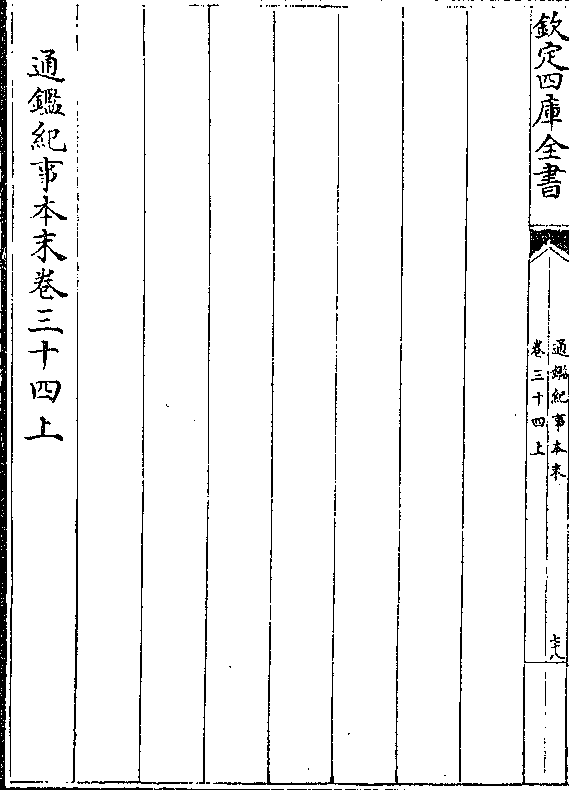 欽定四庫全書
通鑑紀事本末
卷三十四上
七十八
通鑑紀事本末卷三十四上